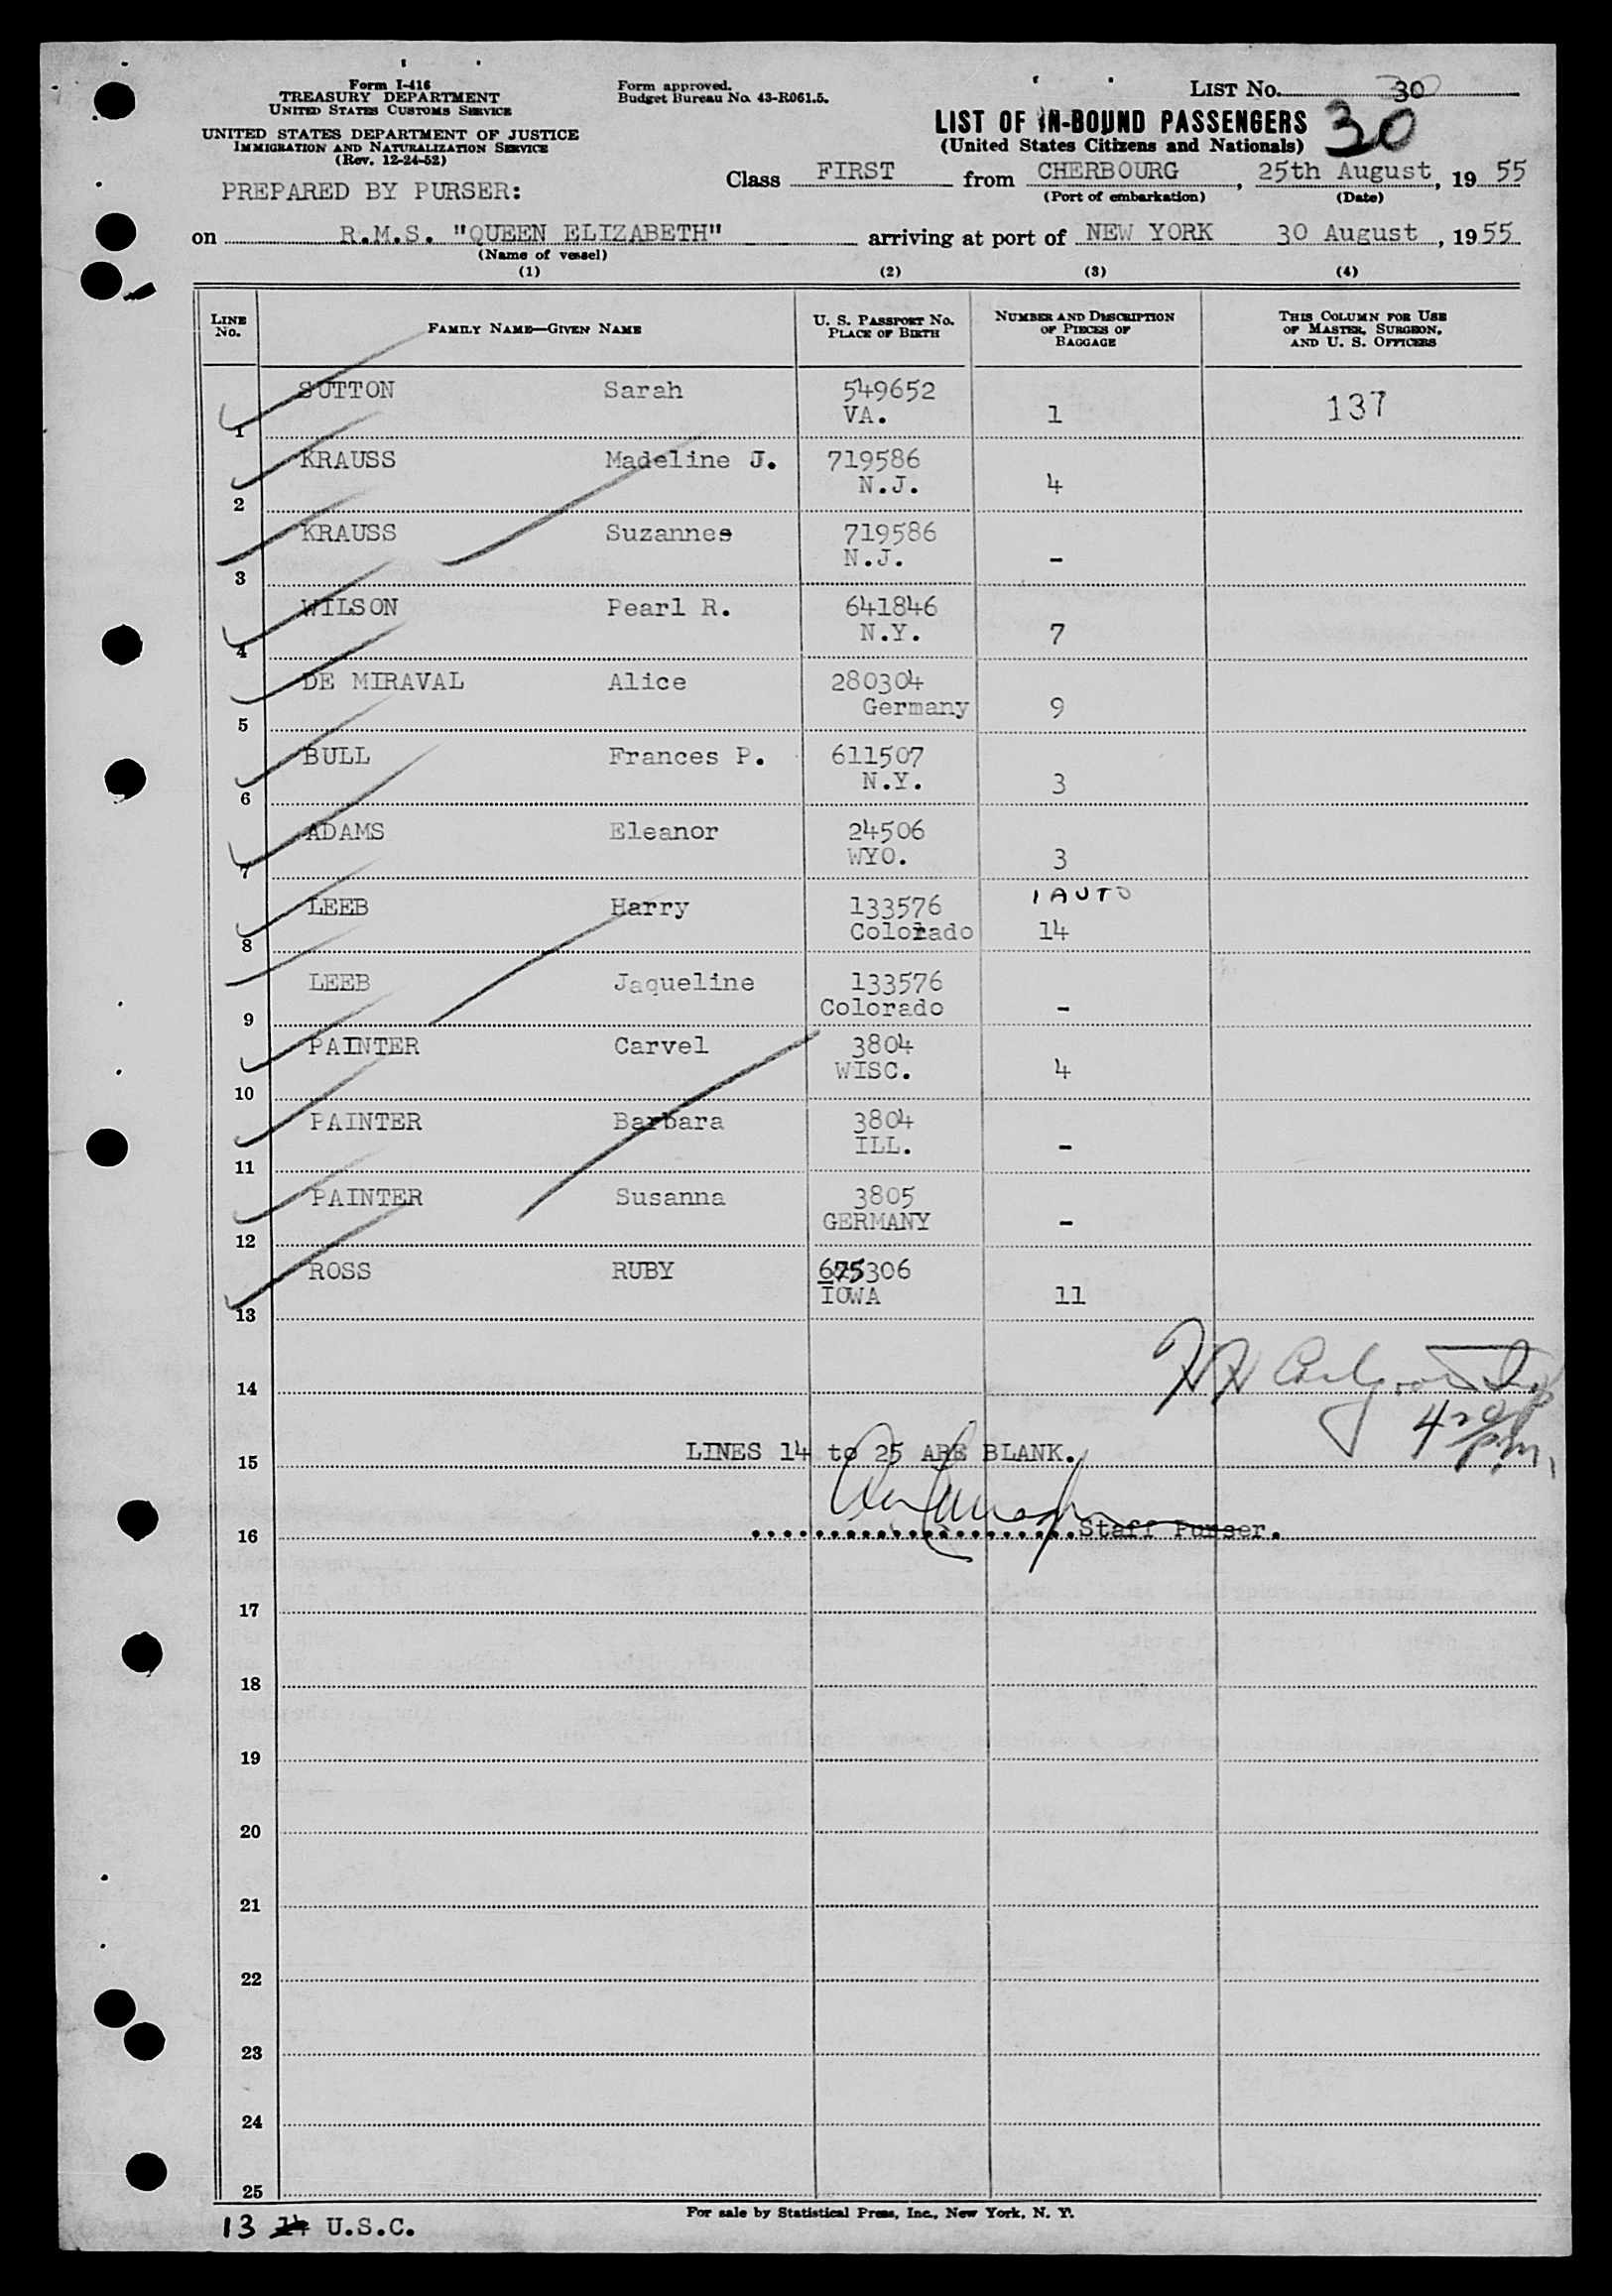 Form I-416
TREASURY DEPARTMENT
UNITED STATES CUSTOMS SERVICE
UNITED STATES DEPARTMENT OF JUSTICE
IMMIGRATION AND NATURALIZATION SERVICE
(Rev. 12-24-52)
PREPARED BY PURSER:
Form approved.
Budget Bureau No. 43-R061.5.
LIST No. 30
LIST OF IN-BOUND PASSENGERS 30
(United States Citizens and Nationals)
Class FIRST from CHERBOURG, 25th August, 19 55
(Port of embarkation) (Date)
on R.M.S. "QUEEN ELIZABETH" arriving at port of NEW YORK 30 August, 1955
(Name of vessel)
(1) (2) (3) (4)
LINE No. FAMILY NAME—GIVEN NAME U. S. PASSPORT No. PLACE OF BIRTH NUMBER AND DESCRIPTION OF PIECES OF BAGGAGE THIS COLUMN FOR USE OF MASTER, SURGEON, AND U. S. OFFICERS
SUTTON Sarah 549652
1 VA. 1 137
KRAUSS Madeline J. 719586
2 N.J. 4
KRAUSS Suzannes 719586
3 N.J. -
WILSON Pearl R. 641846
4 N.Y. 7
DE MIRAVAL Alice 280304
5 Germany 9
BULL Frances P. 611507
6 N.Y. 3
ADAMS Eleanor 24506
7 WYO. 3
LEEB Harry 133576 1 AUTO
8 Colorado 14
LEEB Jaqueline 133576
9 Colorado -
PAINTER Carvel 3804
10 WISC. 4
PAINTER Barbara 3804
11 ILL. -
PAINTER Susanna 3805
12 GERMANY -
ROSS RUBY 675306
13 IOWA 11
14
15 LINES 14 to 25 ARE BLANK.
16 Staff Purser.
17
18
19
20
21
22
23
24
25
For sale by Statistical Press, Inc., New York, N. Y.
13 14 U.S.C.